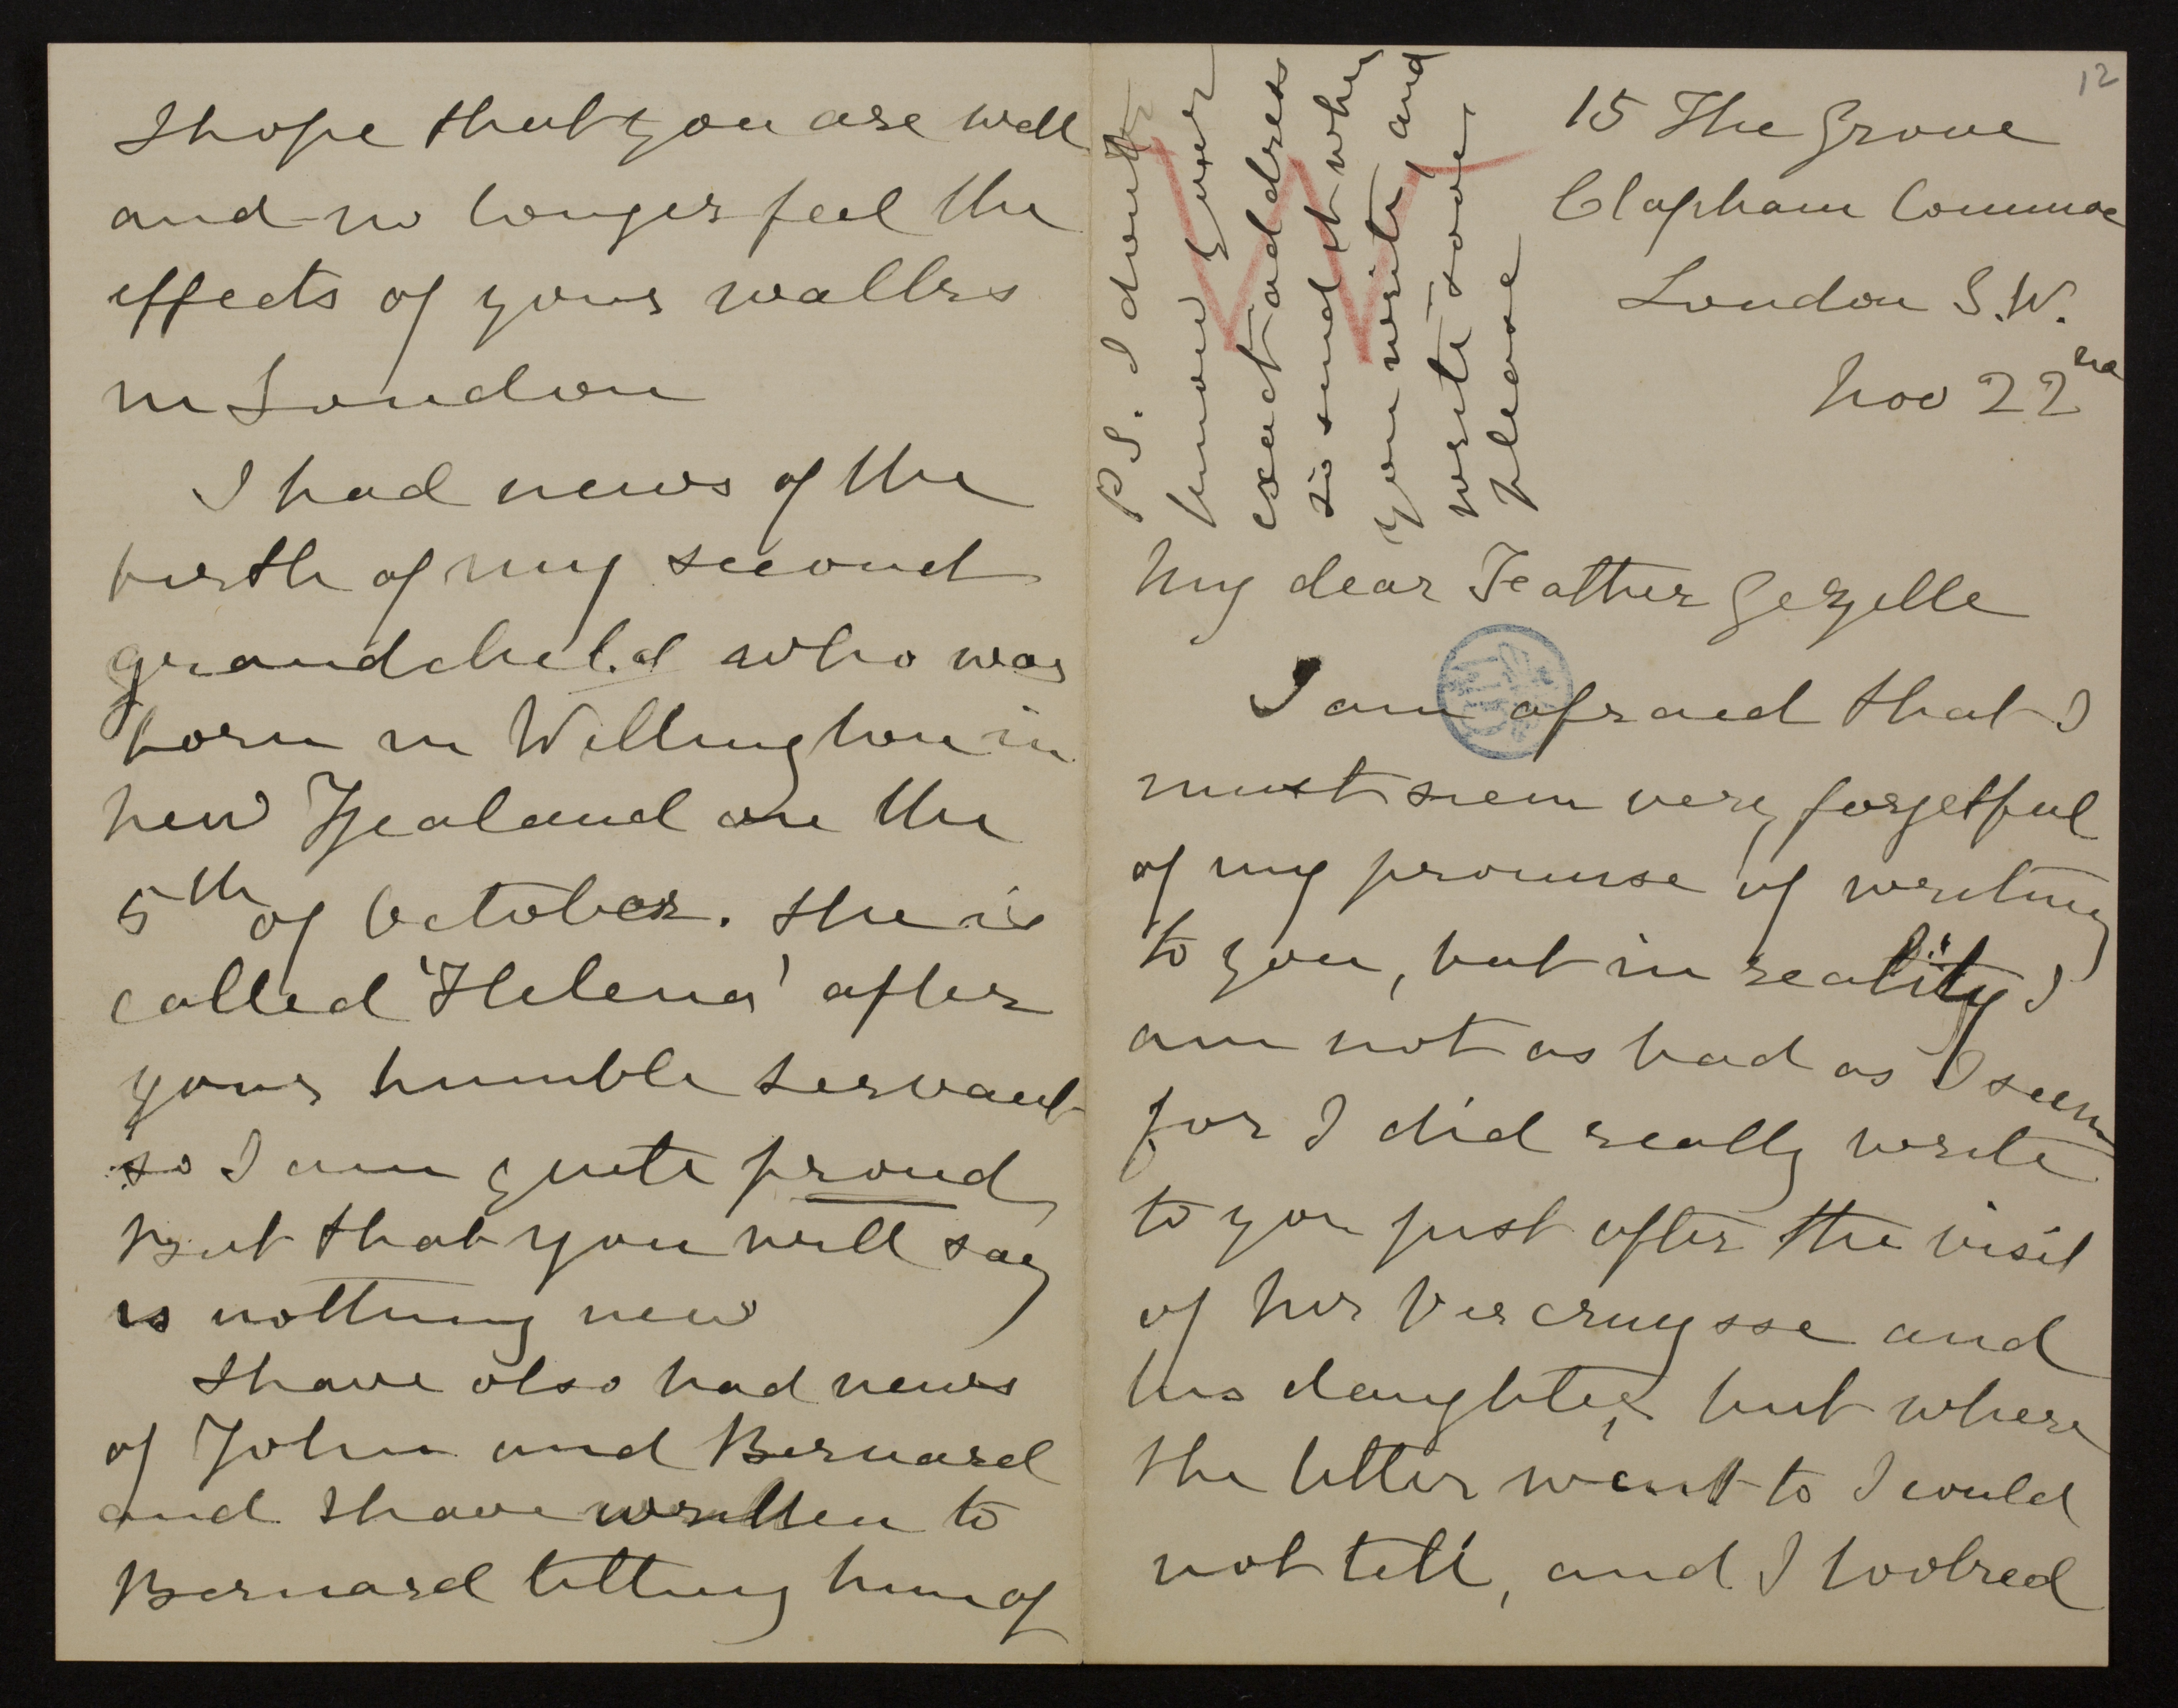 12
15 The Grove
Clapham Common
London S.W.
Nov 22nd
P.S. I don't
know your
exact address
so send it when
you write, and
write soon,
please
My dear Feather Gezelle
I am afraid that I
must seem very forgetful
of my promise of writing
to you, but in reality I
am not as bad as I seem
for I did really write
to you just after the visit
of Mr Vercruysse and
his daughter, but where
the letter went to I could
not tell, and I looked
I hope that you are well
and no longer feel the
effects of your walks
in London
I had news of the
birth of my second
grandchild who was
born in Wellington in
New Zealand on the
5th of October. She is
called 'Helena' after
your humble servant
so I am quite proud
But that you will say
is nothing new
I have also had news
of John and Bernard
and I have written to
Bernard telling him of